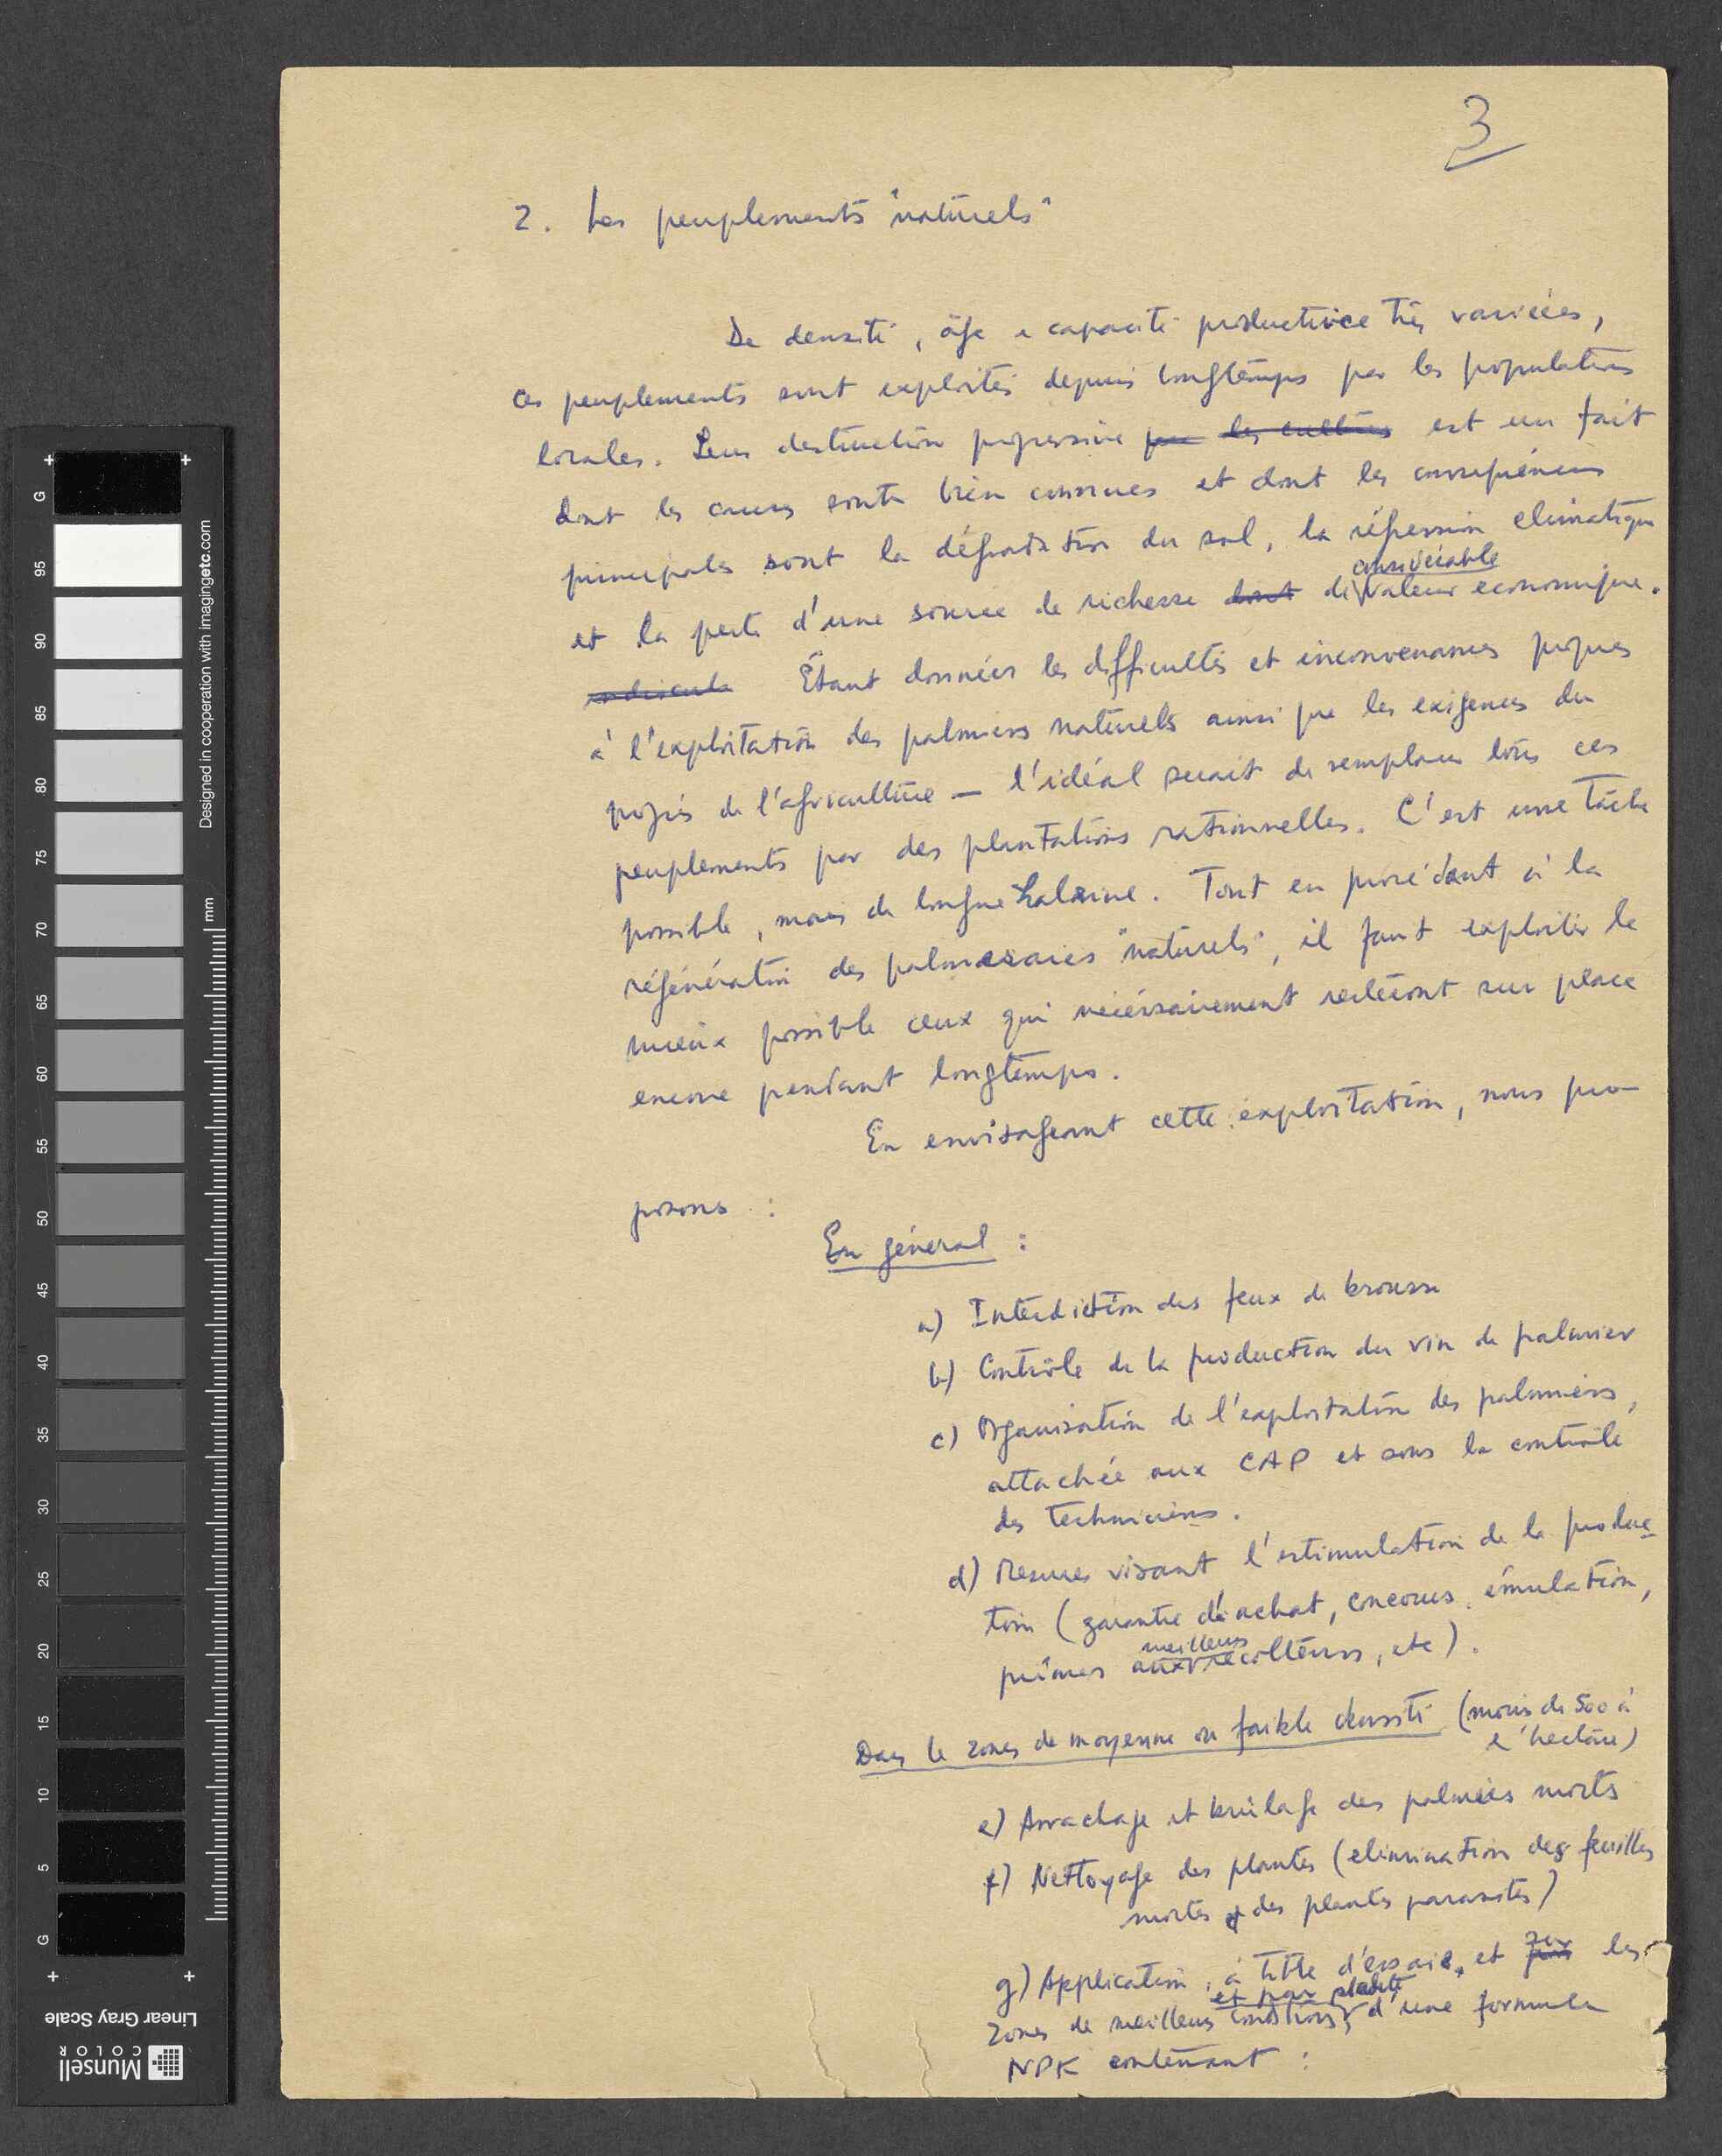 3
2. Les peuplements "naturels"
De densité, âge e capacité productrice très variées,
ces peuplements sont exploités depuis longtemps par les populations
locales. Leur destruction progressive par les cultures est un fait
dont les causes sont bien connues et dont les conséquences
principales sont la dégradation du sol, la régression climatique
considérable
et la perte d'une source de richesse dont de valeur economique.
Étant données les difficultés et inconvenances propres
à l'exploitation des palmiers naturels ainsi que les exigences du
progrès de l'agriculture — l'idéal serait de remplacer tous ces
peuplements par des plantations rationnelles. C'est une tâche
possible, mais de longue halaine. Tout en procédant à la
régénération des palmeraies "naturels", il faut exploiter le
mieux possible ceux qui nécéssairement resteront sur place
encore pendant longtemps.
En envisageant cette exploitation, nous pro-
posons :
En général :
a) Interdiction des feux de brousse
b) Contrôle de la production du vin de palmier
c) Organisation de l'exploitation des palmiers,
attachée aux CAP et sous le contrôle
des techniciens.
d) Mesures visant l'estimulation de la produc-
tion (garantie de achat, concours, émulation,
meilleurs
primes aux récolteurs, etc).
Dans le zones de moyenne ou faible densité (moins de 500 à
l'hectare)
e) Arrachage et brûlage des palmiers morts
f) Nettoyage des plantes (elimination des feuilles
mortes et des plantes parasites)
g) Application, à titre d'essais, et pour les
et par plante
zones de meilleurs conditions, d'une formule
NPK contenant :
G
95
90
85
80
75
70
65
60
55
50
45
40
35
30
25
20
15
10
5
G
mm
Designed in cooperation with imagingetc.com
Linear Gray Scale
Munsell
COLOR